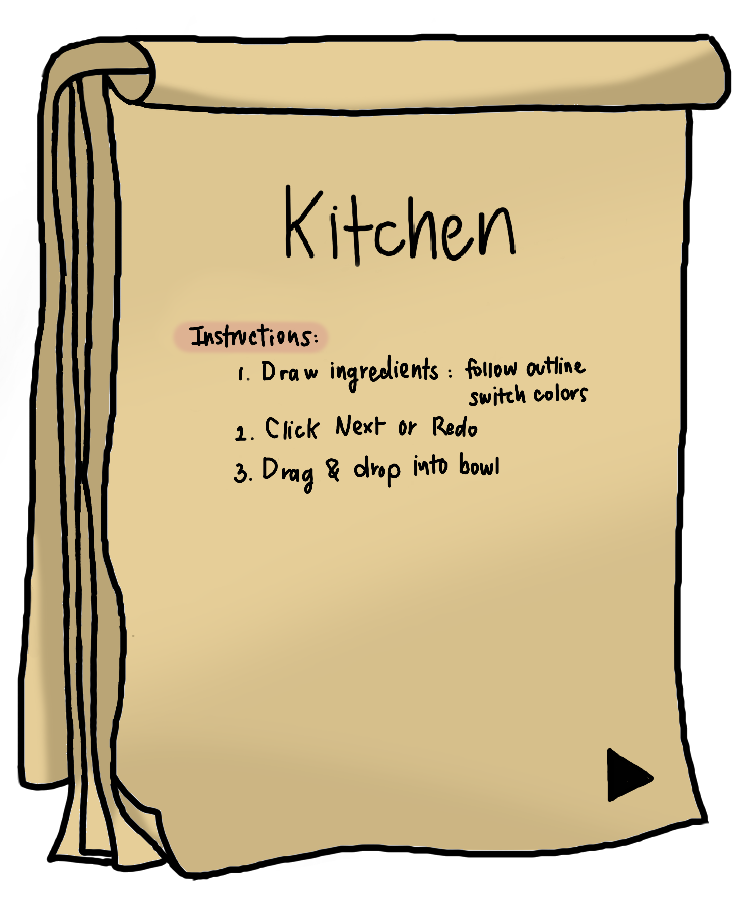 Kitchen
Instructions:
1. Draw ingredients : follow outline
switch colors
2. Click Next or Redo
3. Drag & drop into bowl